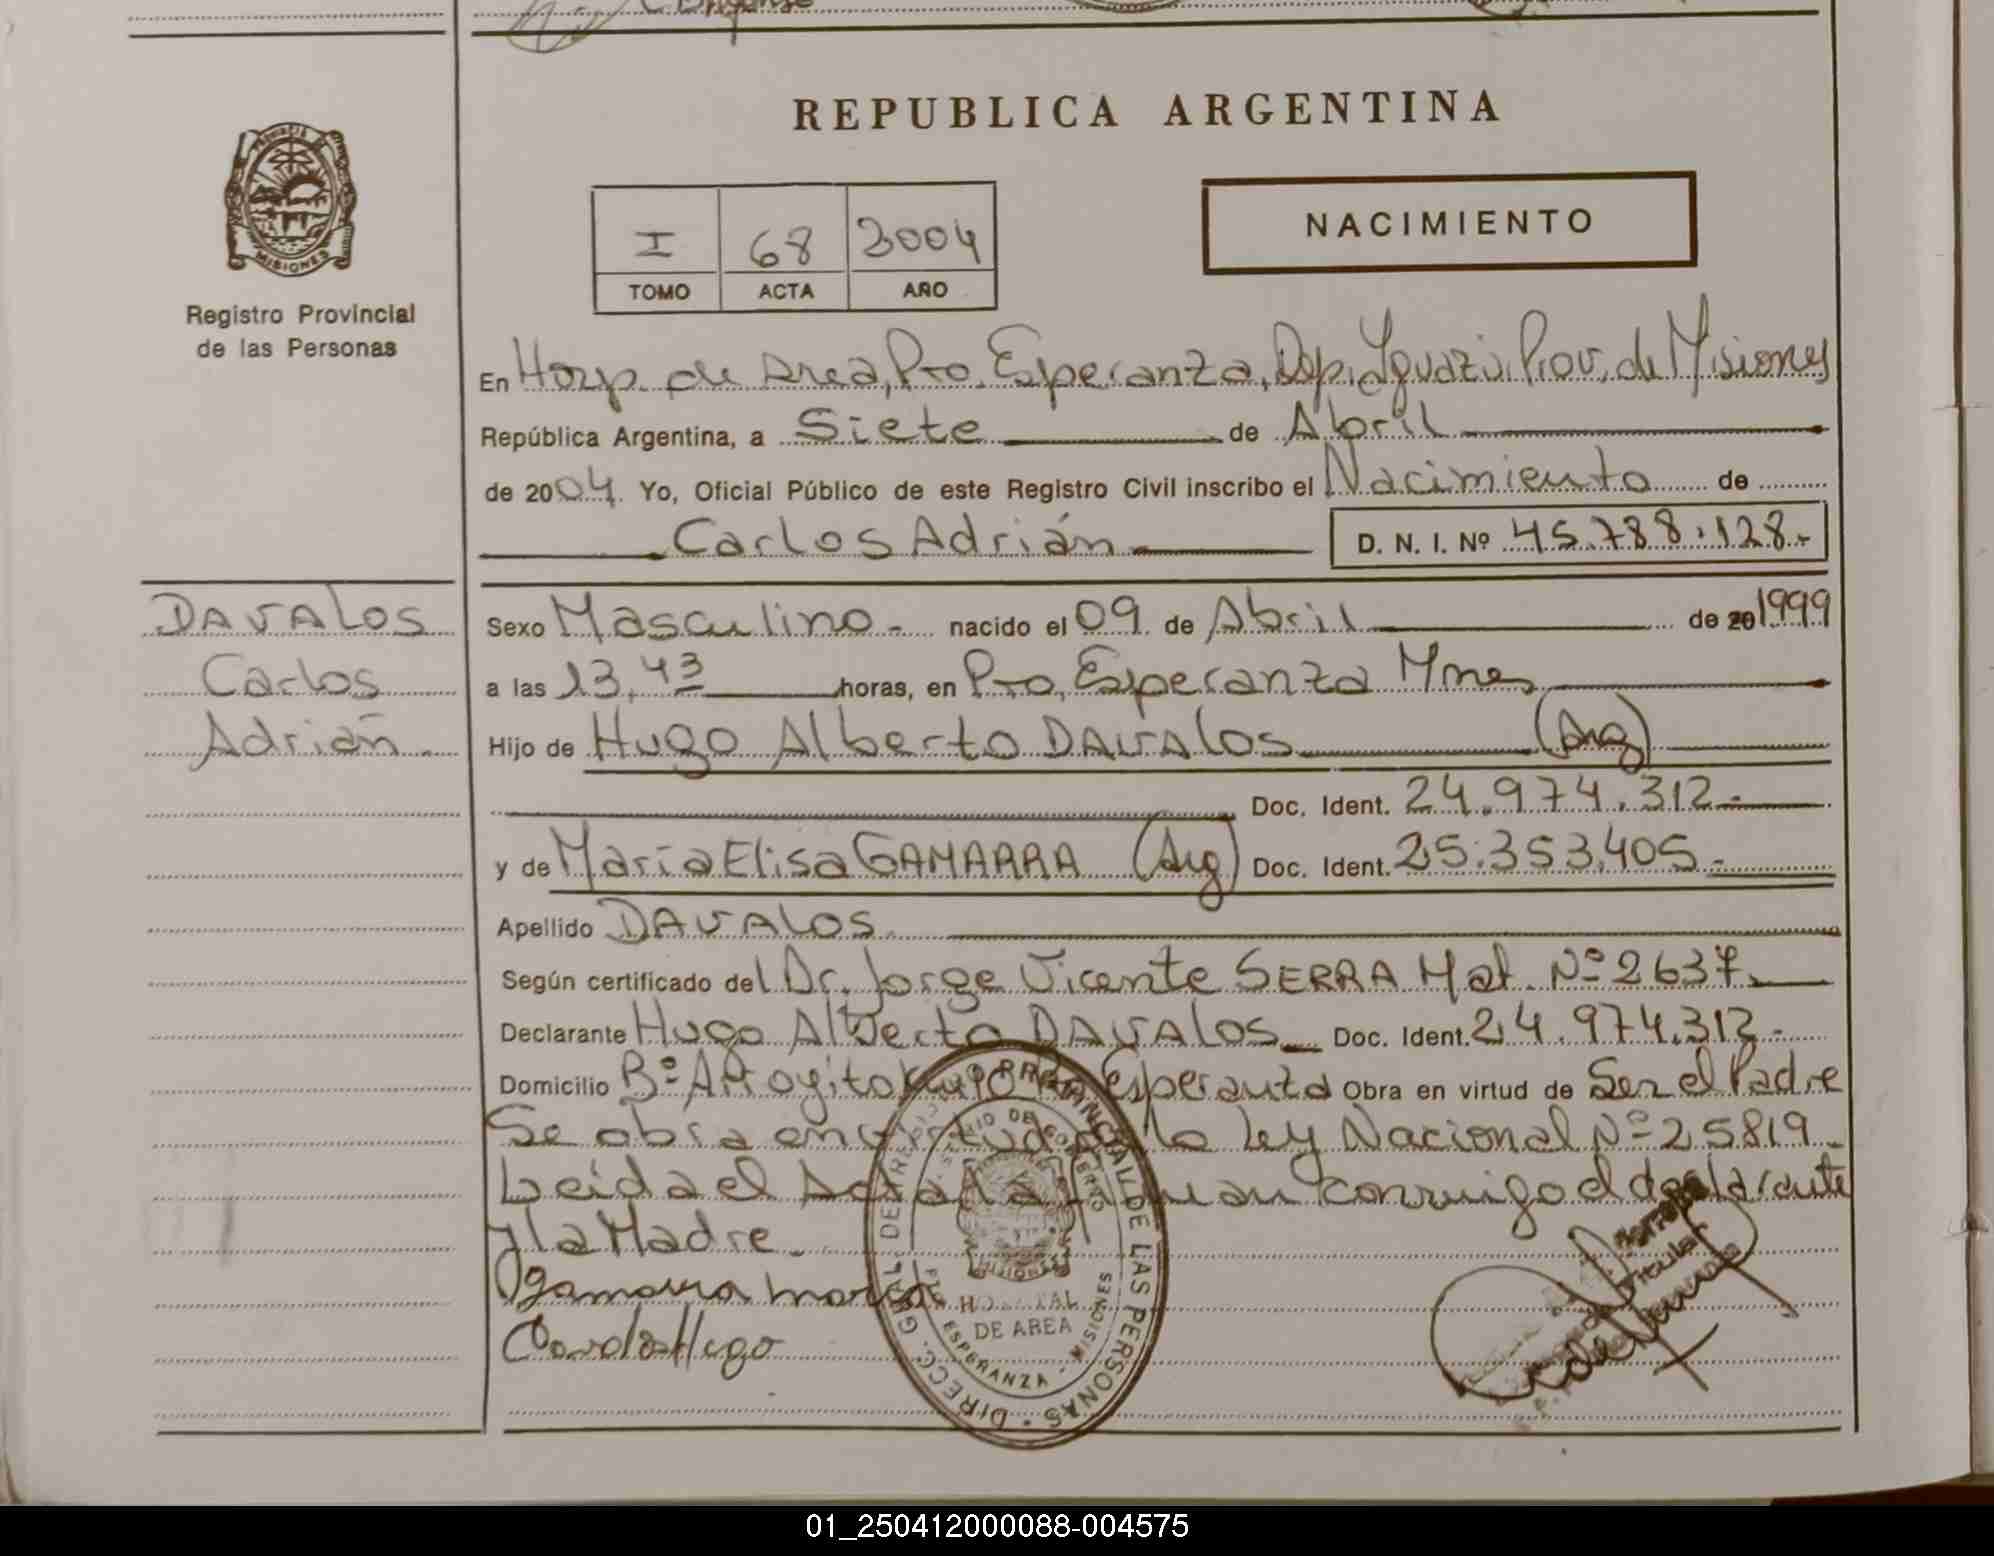 REPUBLICA ARGENTINA
MISIONES
Registro Provincial
de las Personas
I 68 2004
TOMO ACTA AÑO
NACIMIENTO
En Hosp. de Area, Pto. Esperanza, Dep. Iguazú. Prov. de Misiones
República Argentina, a Siete de Abril
de 2004. Yo, Oficial Público de este Registro Civil inscribo el Nacimiento de
Carlos Adrián D. N. I. Nº 45.788.128.-
DAVALOS
Carlos
Adrián.
Sexo Masculino.- nacido el 09 de Abril de 20 1999
a las 13,43 horas, en Pto, Esperanza Mnes
Hijo de Hugo Alberto DAVALOS (Arg)
Doc. Ident. 24.974.312.-
y de María Elisa GAMARRA (Arg) Doc. Ident. 25.353.405.-
Apellido DAVALOS
Según certificado del Dr. Jorge Vicente SERRA Mat. Nº 2637.
Declarante Hugo Alberto DAVALOS Doc. Ident. 24.974.312.-
Domicilio Bº Arroyito Esperanza Obra en virtud de Ser el Padre
Se obra en virtud de la Ley Nacional Nº 25819
Leída el Acta la firman conmigo el declarante
y la Madre.
gamarra maria
Davalos Hugo
DIRECC. GRAL. DE REGISTRO PROVINCIAL DE LAS PERSONAS
MINISTERIO DE GOBIERNO
MISIONES
HOSPITAL
DE AREA
PTO. ESPERANZA - MISIONES
Titular
01_250412000088-004575